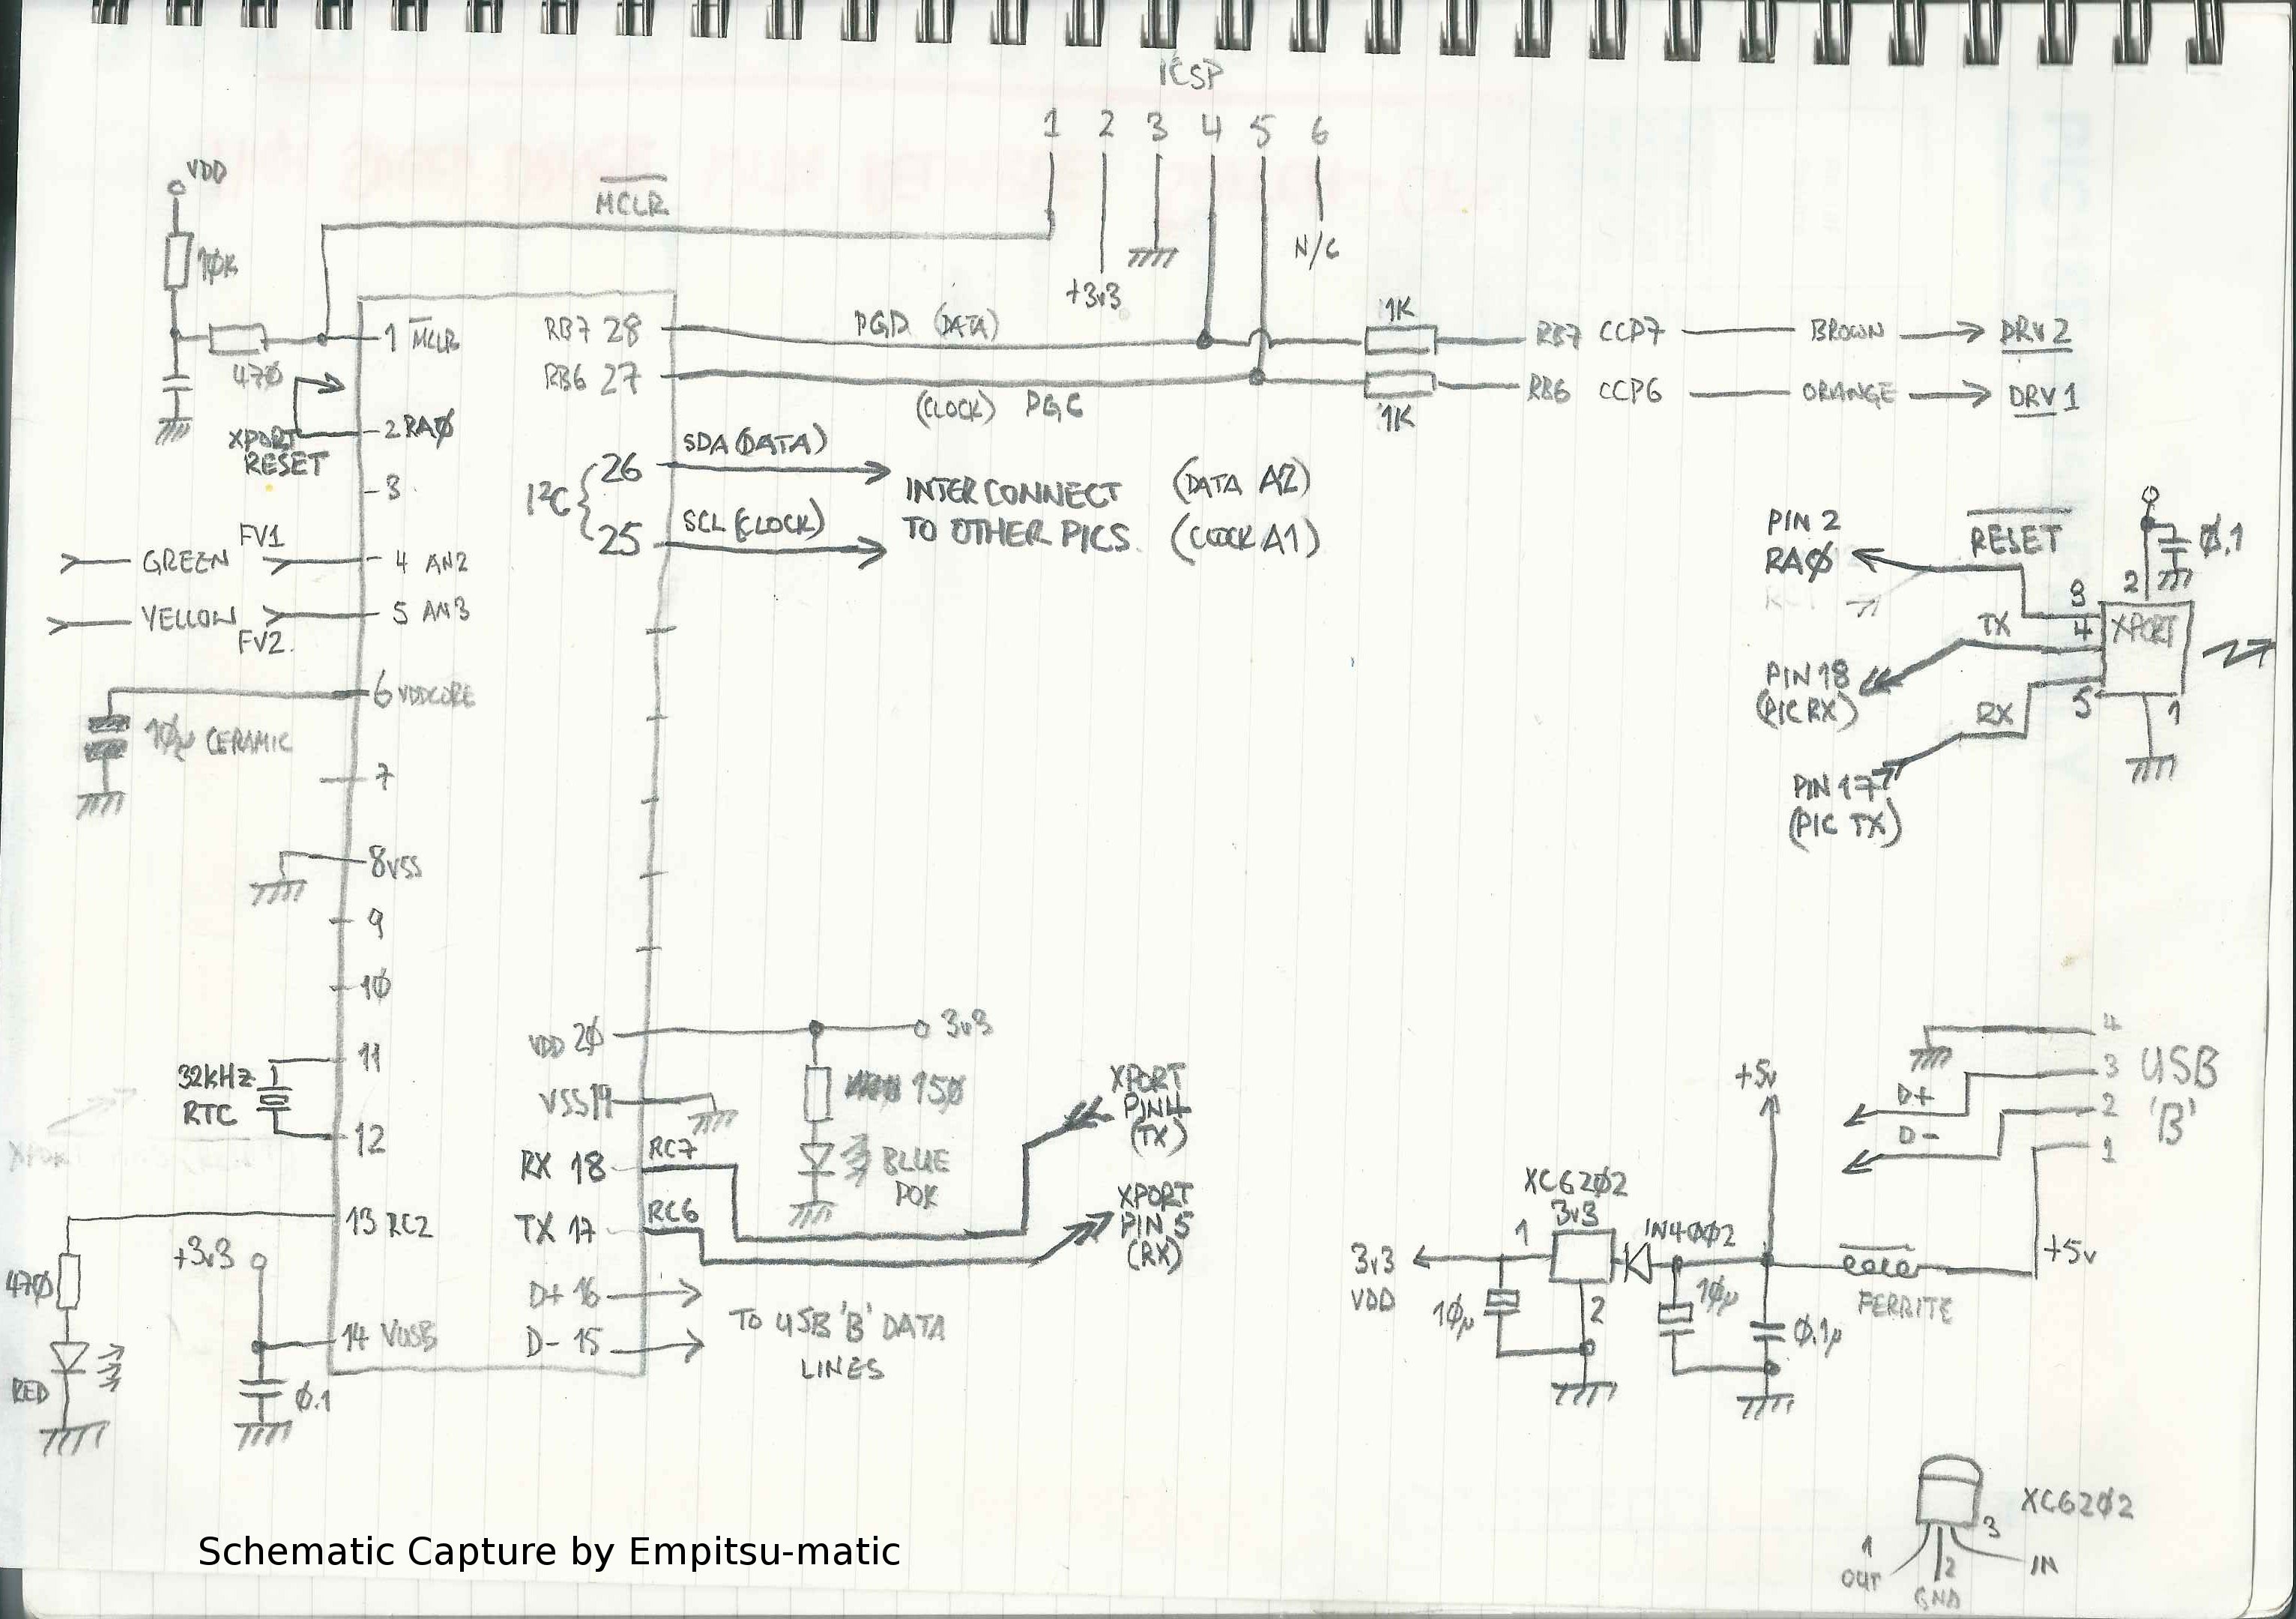 ICSP
1 2 3 4 5 6
VDD
MCLR
10K
N/C
+3v3
470
1 MCLR
RB7 28
PGD (DATA)
1K
RB7 CCP7
BROWN
DRV2
RB6 27
(CLOCK) PGC
1K
RB6 CCP6
ORANGE
DRV1
2 RAØ
XPORT
RESET
3
I²C
26
SDA (DATA)
25
SCL (CLOCK)
INTERCONNECT
TO OTHER PICS
(DATA A2)
(CLOCK A1)
GREEN
FV1
4 AN2
YELLOW
FV2.
5 AN3
6 VDDCORE
1Øµ CERAMIC
7
8 VSS
9
1Ø
11
32kHz
RTC
12
13 RC2
47Ø
RED
+3v3
14 VUSB
Ø.1
VDD 2Ø
3v3
15Ø
BLUE
VSS 19
RX 18
RC7
TX 17
RC6
D+ 16
D- 15
TO USB 'B' DATA
LINES
XPORT
PIN4
(TX)
XPORT
PIN 5
(RX)
PIN 2
RAØ
RESET
Ø.1
3
2
TX
4
XPORT
PIN 18
(PIC RX)
RX
5
1
PIN 17
(PIC TX)
4
3
2
1
USB
'B'
D+
D-
+5v
+5v
FERRITE
XC62Ø2
3v3
1
2
IN4ØØ2
3v3
VDD
1Øµ
1Øµ
Ø.1µ
XC62Ø2
1
OUT
2
GND
3
IN
Schematic Capture by Empitsu-matic